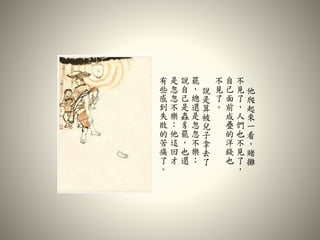 他爬起來一看，賭攤
不見了，人們也不見了，
自己面前成疊的洋錢也
不見了。
說是算被兒子拿去了
罷，總還是忽忽不樂；
說自己是蟲豸罷，也還
是忽忽不樂；他這回才
有些感到失敗的苦痛了。